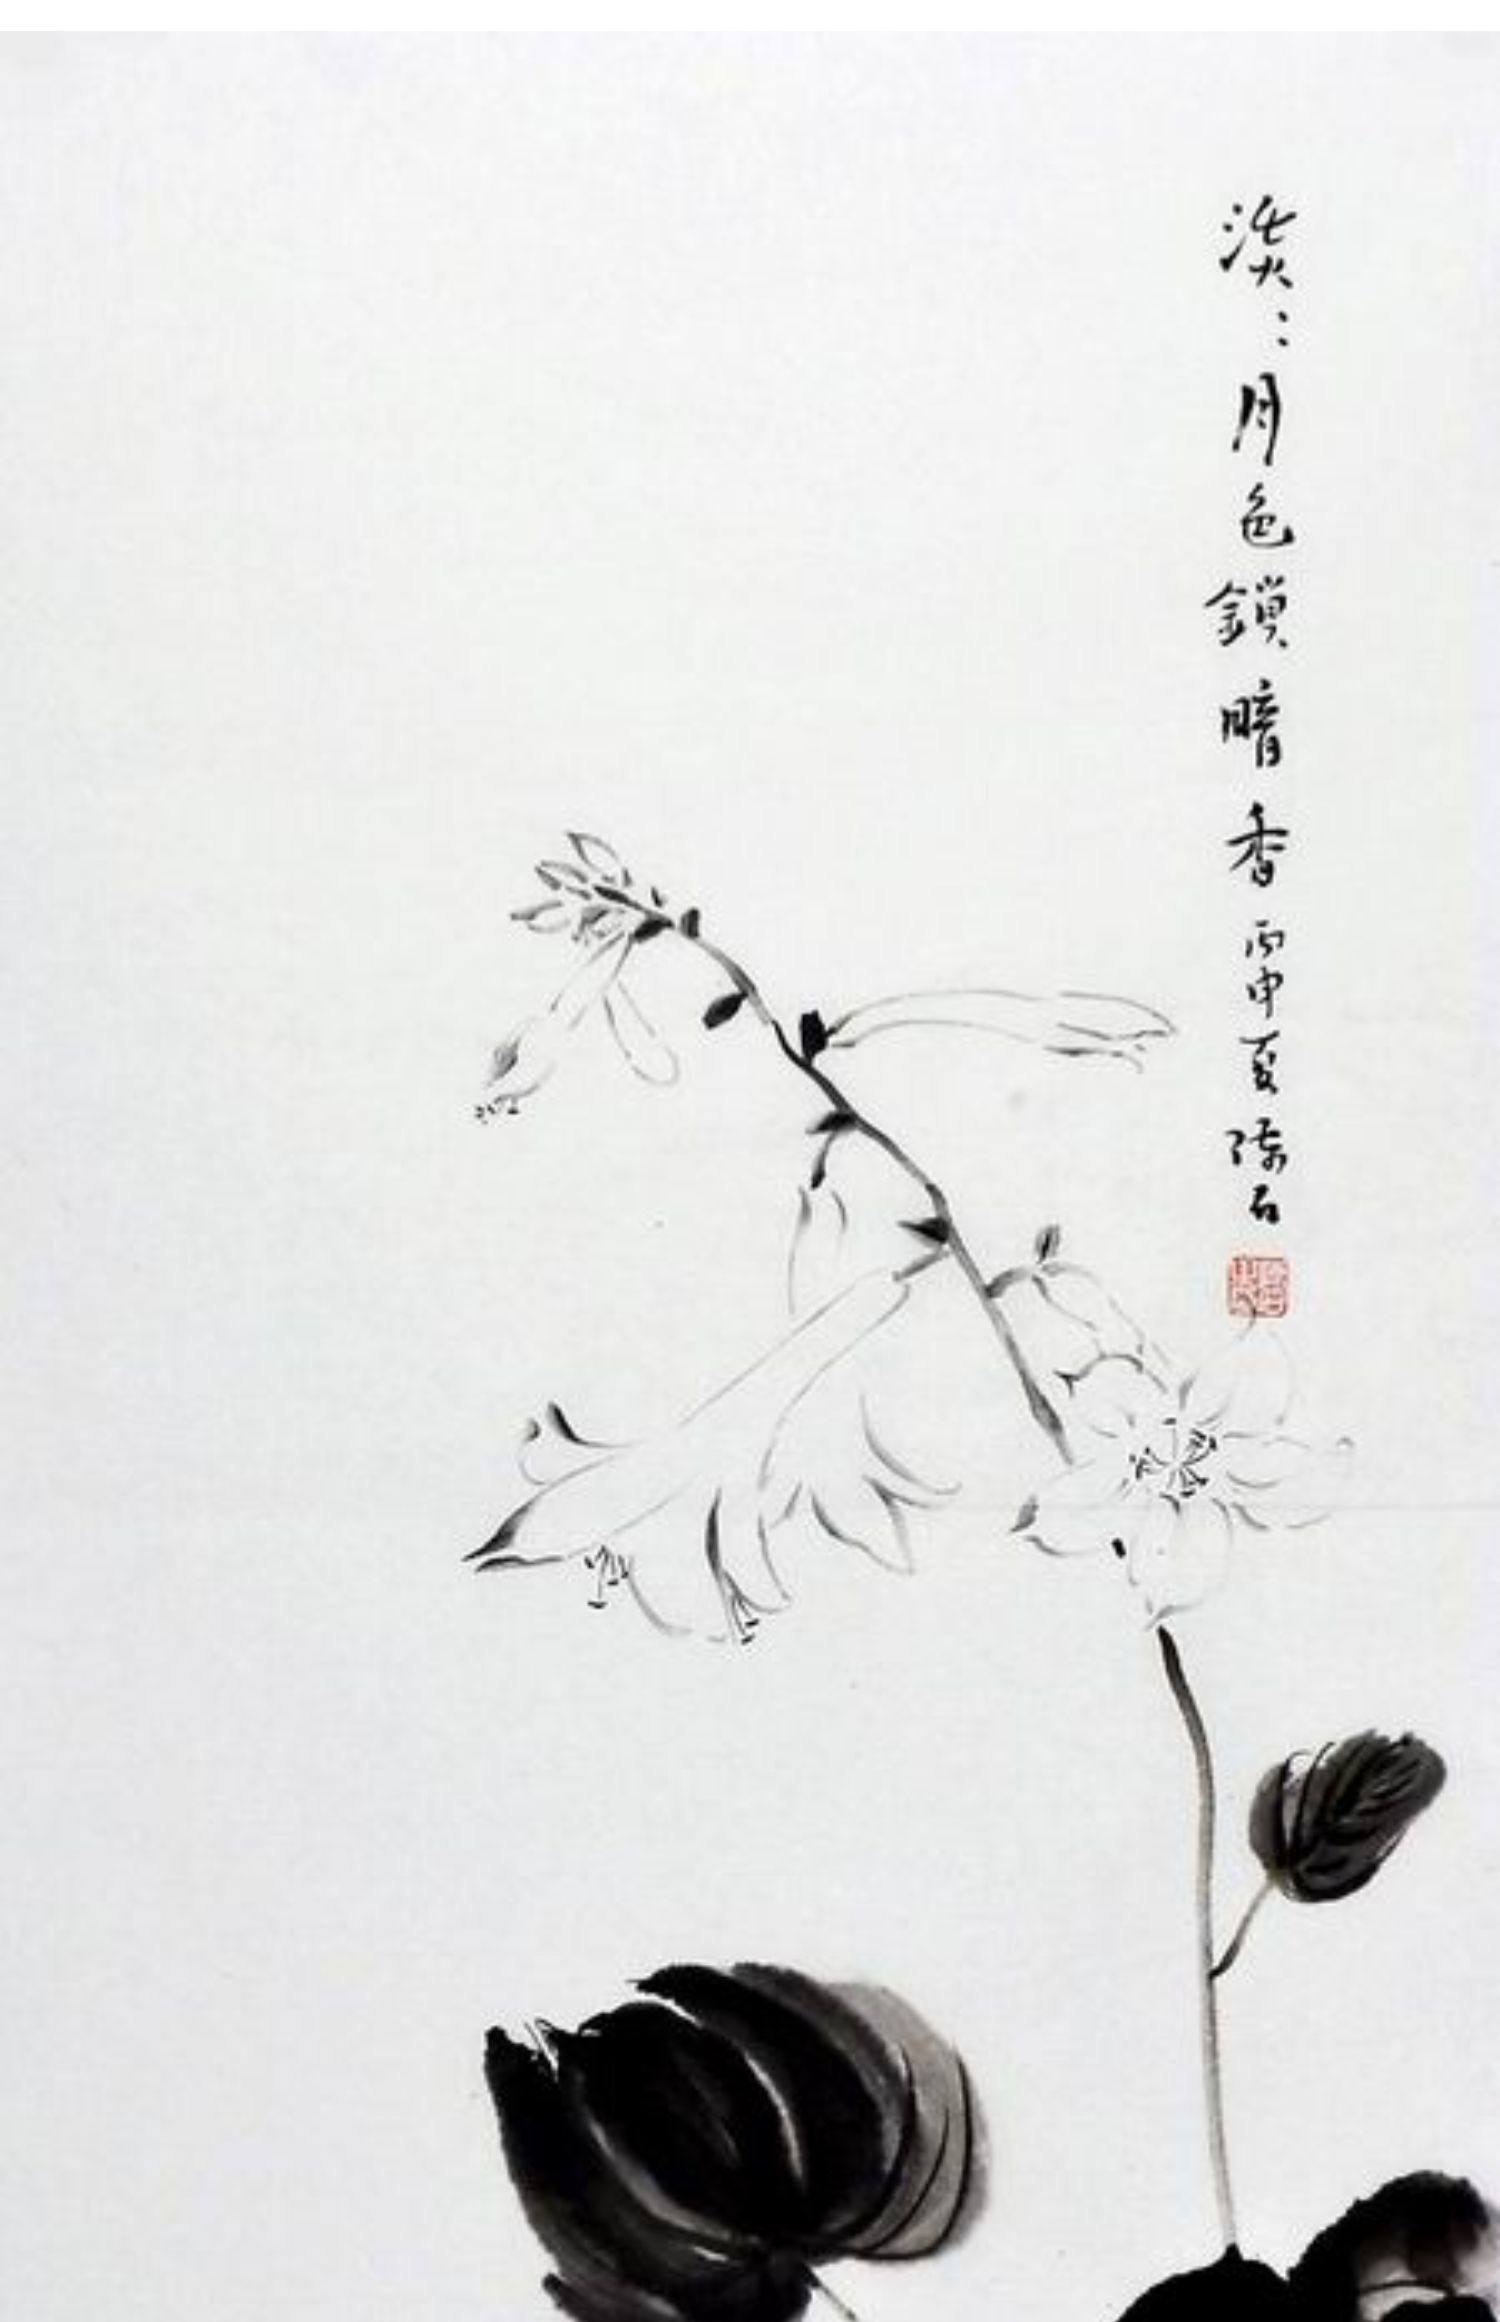 淡〻月色鎖暗香丙申夏陈石